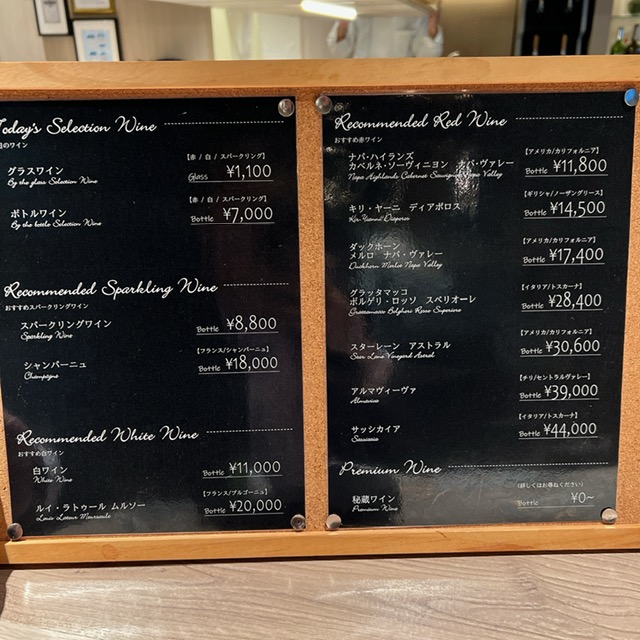 Today's Selection Wine
日のワイン
グラスワイン
By the glass Selection Wine
【赤 / 白 / スパークリング】
Glass ¥1,100
ボトルワイン
By the bottle Selection Wine
【赤 / 白 / スパークリング】
Bottle ¥7,000
Recommended Sparkling Wine
おすすめスパークリングワイン
スパークリングワイン
Sparkling Wine
Bottle ¥8,800
シャンパーニュ
Champagne
【フランス/シャンパーニュ】
Bottle ¥18,000
Recommended White Wine
おすすめ白ワイン
白ワイン
White Wine
Bottle ¥11,000
ルイ・ラトゥール ムルソー
Louis Latour Meursault
【フランス/ブルゴーニュ】
Bottle ¥20,000
Recommended Red Wine
おすすめ赤ワイン
ナパ・ハイランズ
カベルネ・ソーヴィニヨン ナパ・ヴァレー
Napa Highlands Cabernet Sauvignon Napa Valley
【アメリカ/カリフォルニア】
Bottle ¥11,800
キリ・ヤーニ ディアポロス
Kir-Yianni Diaporos
【ギリシャ/ノーザングリース】
Bottle ¥14,500
ダックホーン
メルロ ナパ・ヴァレー
Duckhorn Merlot Napa Valley
【アメリカ/カリフォルニア】
Bottle ¥17,400
グラッタマッコ
ボルゲリ・ロッソ スペリオーレ
Grattamacco Bolgheri Rosso Superiore
【イタリア/トスカーナ】
Bottle ¥28,400
スターレーン アストラル
Star Lane Vineyard Astral
【アメリカ/カリフォルニア】
Bottle ¥30,600
アルマヴィーヴァ
Almaviva
【チリ/セントラルヴァレー】
Bottle ¥39,000
サッシカイア
Sassicaia
【イタリア/トスカーナ】
Bottle ¥44,000
Premium Wine
秘蔵ワイン
Premium Wine
(詳しくはお尋ねください)
Bottle ¥0~